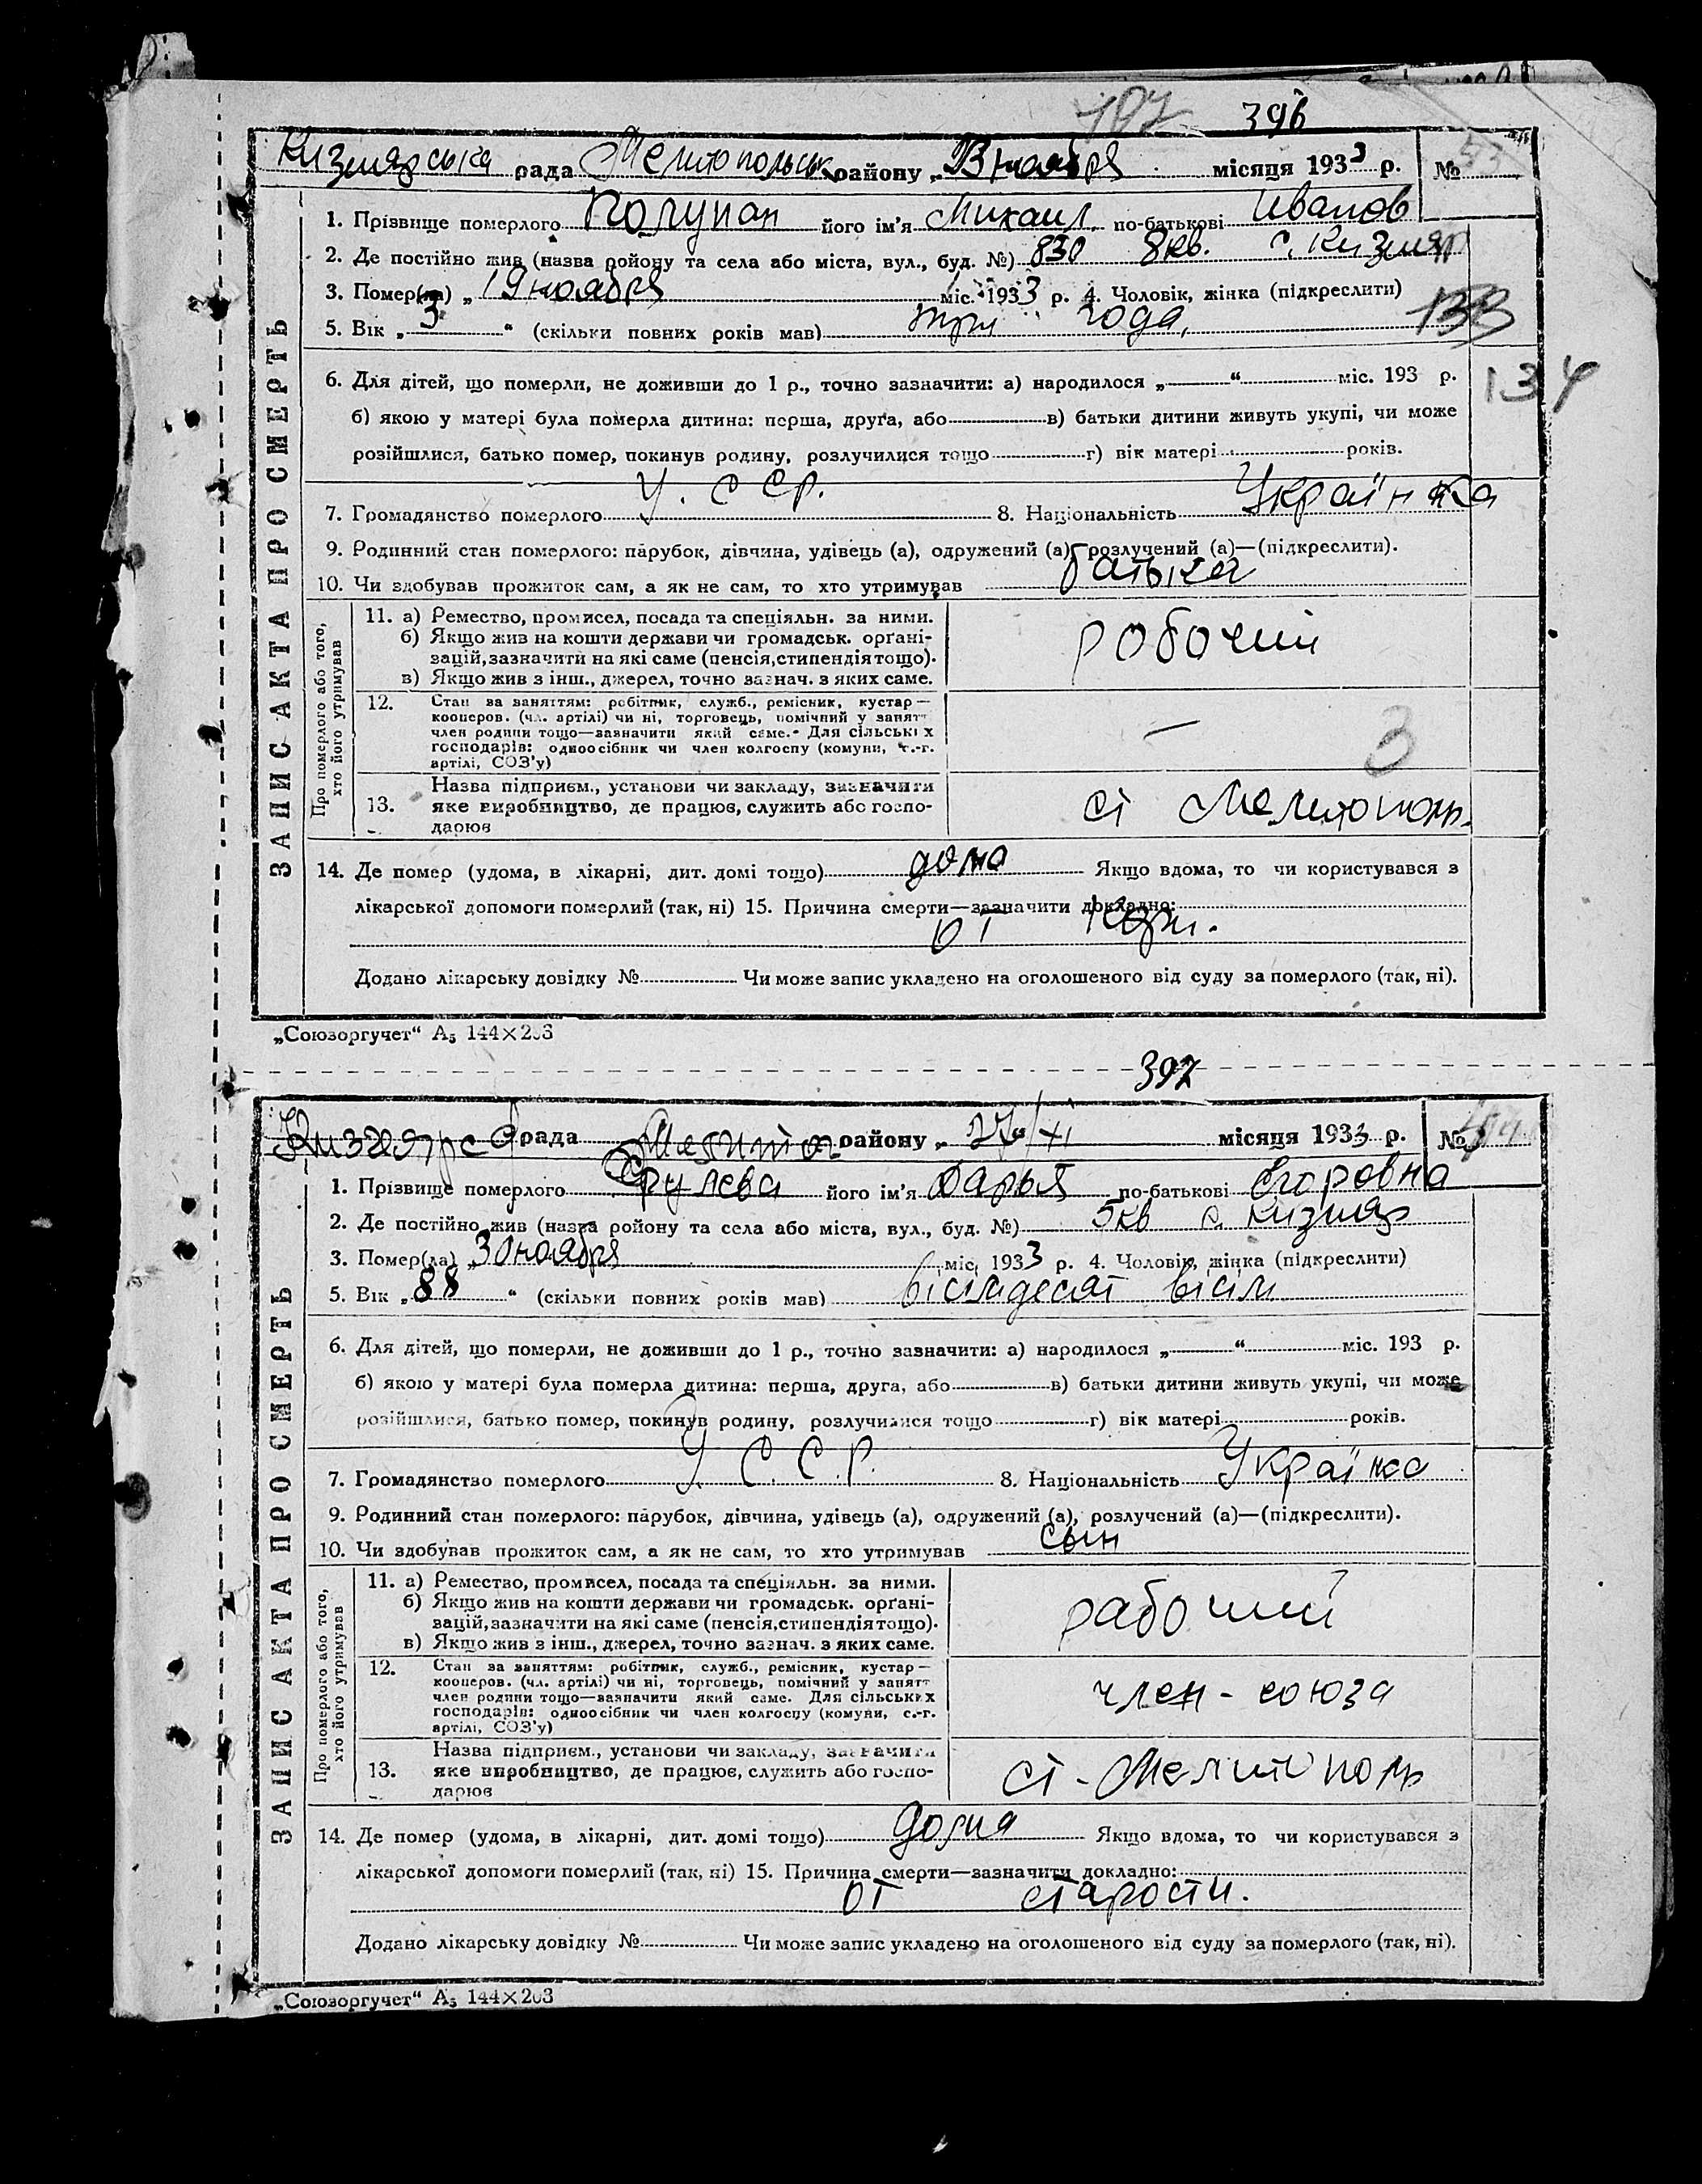 396
Кизиярська рада Мелитопольськ району „ ноября місяця 1933 р. №
1. Прізвище померлого Полупан його ім'я Михаил по-батькові Иванов
2. Де постійно жив (назва ройону та села або міста, вул., буд. №) 830 8кв. с. Кизияр
3. Помер(ла) „ 19 ноября міс. 1933 р. 4. Чоловік, жінка (підкреслити)
5. Вік „ 3 “ (скільки повних років мав) три года,
133
134
6. Для дітей, що померли, не доживши до 1 р., точно зазначити: а) народилося „ “ міс. 193 р.
б) якою у матері була померла дитина: перша, друга, або в) батьки дитини живуть укупі, чи може
розійшлися, батько помер, покинув родину, розлучилися тощо г) вік матері років.
7. Громадянство померлого У. С С Р. 8. Національність Українка
9. Родинний стан померлого: парубок, дівчина, удівець (а), одружений (а), розлучений (а)—(підкреслити).
10. Чи здобував прожиток сам, а як не сам, то хто утримував батька
ЗАПИС АКТА ПРО СМЕРТЬ
Про померлого або того, хто його утримував
11. а) Ремество, промисел, посада та спеціяльн. за ними.
б) Якщо жив на кошти держави чи громадськ. орґані-
зацій, зазначити на які саме (пенсія, стипендія тощо).
в) Якщо жив з інш., джерел, точно зазнач. з яких саме.
робочий
12. Стан за заняттям: робітник, служб., ремісник, кустар—
кооперов. (чл. артілі) чи ні, торговець, помічний у занятт
член родини тощо—зазначити який саме. Для сільських
господарів: одноосібник чи член колгоспу (комуни, с.-г.
артілі, СОЗ'у)
—
3
13. Назва підприєм., установи чи закладу, зазначити
яке виробництво, де працює, служить або госпо-
дарює
ст Мелитополь.
14. Де помер (удома, в лікарні, дит. домі тощо) дома Якщо вдома, то чи користувався з
лікарської допомоги померлий (так, ні) 15. Причина смерти—зазначити докладно:
от кори.
Додано лікарську довідку № Чи може запис укладено на оголошеного від суду за померлого (так, ні).
„Союзоргучет“ А₅ 144×203
397
рада Мелитоп району „ 27/XI місяця 1933 р. №
1. Прізвище померлого Фрулева його ім'я Дарья по-батькові Егоровна
2. Де постійно жив (назва ройону та села або міста, вул., буд. №) 5кв с. Кизияр
3. Помер(ла) „ 30 ноября міс. 1933 р. 4. Чоловік, жінка (підкреслити)
5. Вік „ 88 “ (скільки повних років мав) вісімдесят вісім
6. Для дітей, що померли, не доживши до 1 р., точно зазначити: а) народилося „ “ міс. 193 р.
б) якою у матері була померла дитина: перша, друга, або в) батьки дитини живуть укупі, чи може
розійшлися, батько помер, покинув родину, розлучилися тощо г) вік матері років.
7. Громадянство померлого У С. С. Р. 8. Національність Українка
9. Родинний стан померлого: парубок, дівчина, удівець (а), одружений (а), розлучений (а)—(підкреслити).
10. Чи здобував прожиток сам, а як не сам, то хто утримував сын
ЗАПИС АКТА ПРО СМЕРТЬ
Про померлого або того, хто його утримував
11. а) Ремество, промисел, посада та спеціяльн. за ними.
б) Якщо жив на кошти держави чи громадськ. орґані-
зацій, зазначити на які саме (пенсія, стипендія тощо).
в) Якщо жив з інш., джерел, точно зазнач. з яких саме.
рабочий
12. Стан за заняттям: робітник, служб., ремісник, кустар—
кооперов. (чл. артілі) чи ні, торговець, помічний у занятт
член родини тощо—зазначити який саме. Для сільських
господарів: одноосібник чи член колгоспу (комуни, с.-г.
артілі, СОЗ'у)
член-союза
13. Назва підприєм., установи чи закладу, зазначити
яке виробництво, де працює, служить або госпо-
дарює
ст-Мелитополь
14. Де помер (удома, в лікарні, дит. домі тощо) дома Якщо вдома, то чи користувався з
лікарської допомоги померлий (так, ні) 15. Причина смерти—зазначити докладно:
от старости.
Додано лікарську довідку № Чи може запис укладено на оголошеного від суду за померлого (так, ні).
„Союзоргучет“ А₅ 144×203